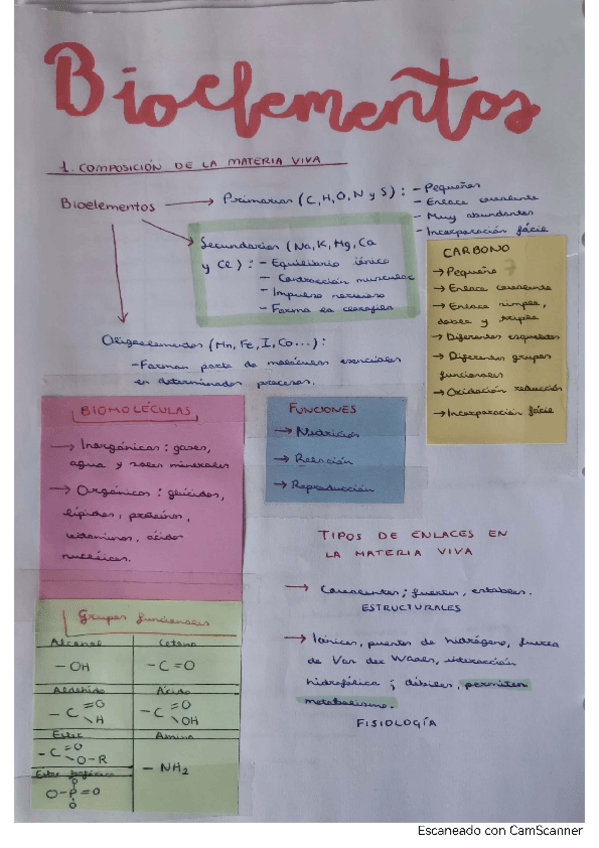 Bioelementos
1. COMPOSICIÓN DE LA MATERIA VIVA
Bioelementos
Primarios (C, H, O, N y S) :
- Pequeños
- Enlace covalente
- Muy abundantes
- Incorporación fácil
Secundarios (Na, K, Mg, Ca
y Cl) : - Equilibrio iónico
- Contracción muscular
- Impulso nervioso
- Forma la clorofila
Oligoelementos (Mn, Fe, I, Co...) :
- Forman parte de moléculas esenciales
en determinados procesos.
CARBONO
→ Pequeño
→ Enlace covalente
→ Enlace simple,
doble y triple
→ Diferentes esqueletos
→ Diferentes grupos
funcionales
→ Oxidación reducción
→ Incorporación fácil
BIOMOLÉCULAS
→ Inorgánicas : gases,
agua y sales minerales
→ Orgánicas : glúcidos,
lípidos, proteínas,
vitaminas, ácidos
nucléicos.
FUNCIONES
→ Nutrición
→ Relación
→ Reproducción
TIPOS DE ENLACES EN
LA MATERIA VIVA
→ Covalentes; fuertes, estables.
ESTRUCTURALES
→ Iónicos, puentes de hidrógeno, fuerza
de Van der Waals, interacción
hidrofóbica ; débiles, permiten
metabolismo.
FISIOLOGÍA
Grupos funcionales
Alcohol
- OH
Cetona
- C = O
Aldehído
- C =O
\ H
Ácido
- C =O
\ OH
Ester
- C =O
\ O-R
Amina
- NH2
Ester fosfórico
O
O-P=O
O
Escaneado con CamScanner